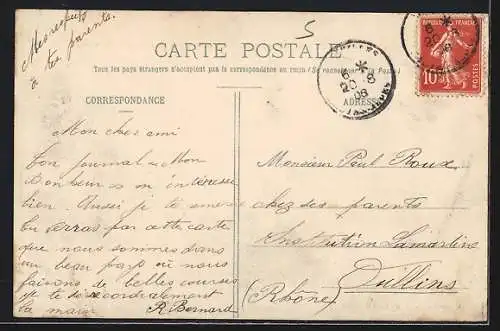 Mes respects
à tes parents.
5
CARTE POSTALE
Tous les pays étrangers n'acceptent pas la correspondance au recto (Se renseigner à la Poste)
CORRESPONDANCE
ADRESSE
RÉPUBLIQUE FRANÇAISE
10
POSTES
6
20 -8
08
Mon cher ami
Ton journal "Mon
Bonheur" m'intéresse
bien. Aussi je te
tu verras par cette carte
que nous sommes dans
un beau pays où nous
faisons de belles courses
je te serre cordialement
la main R. Bernard
Monsieur Paul Roux
chez des parents
Institution Lamartine
Oullins
(Rhône)